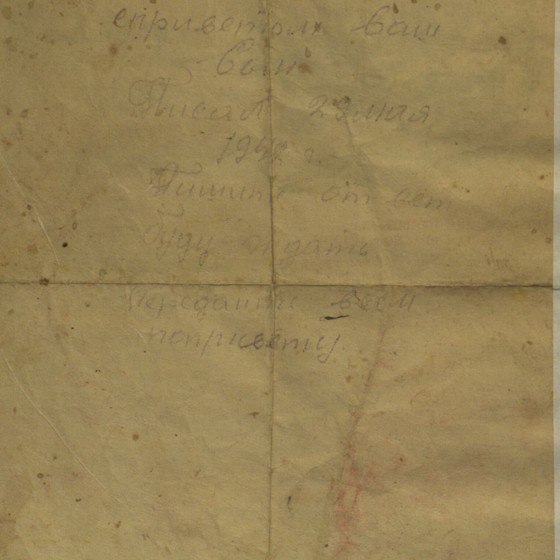 сприветом Ваш
Сын
Писал 29 мая
1942 г.
Пишите от вет
буду ждать
передайте всем
попривету.